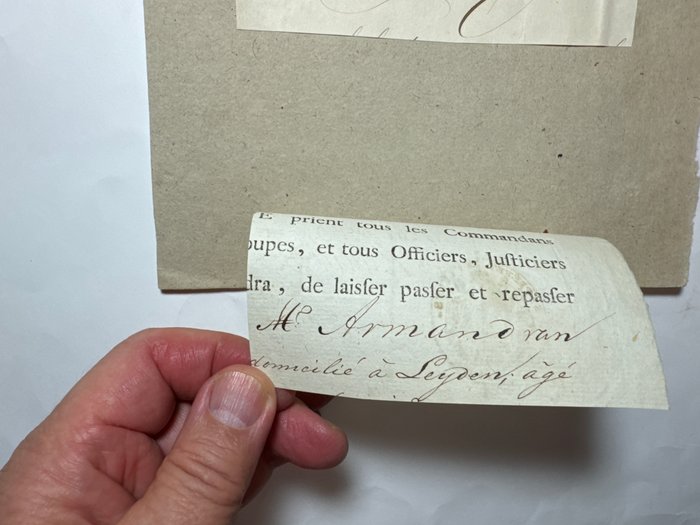 E prient tous les Commandans
oupes, et tous Officiers, Juſticiers
dra, de laiſſer paſſer et repaſſer
Mr. Armand van
domicilié à Leyden, âgé